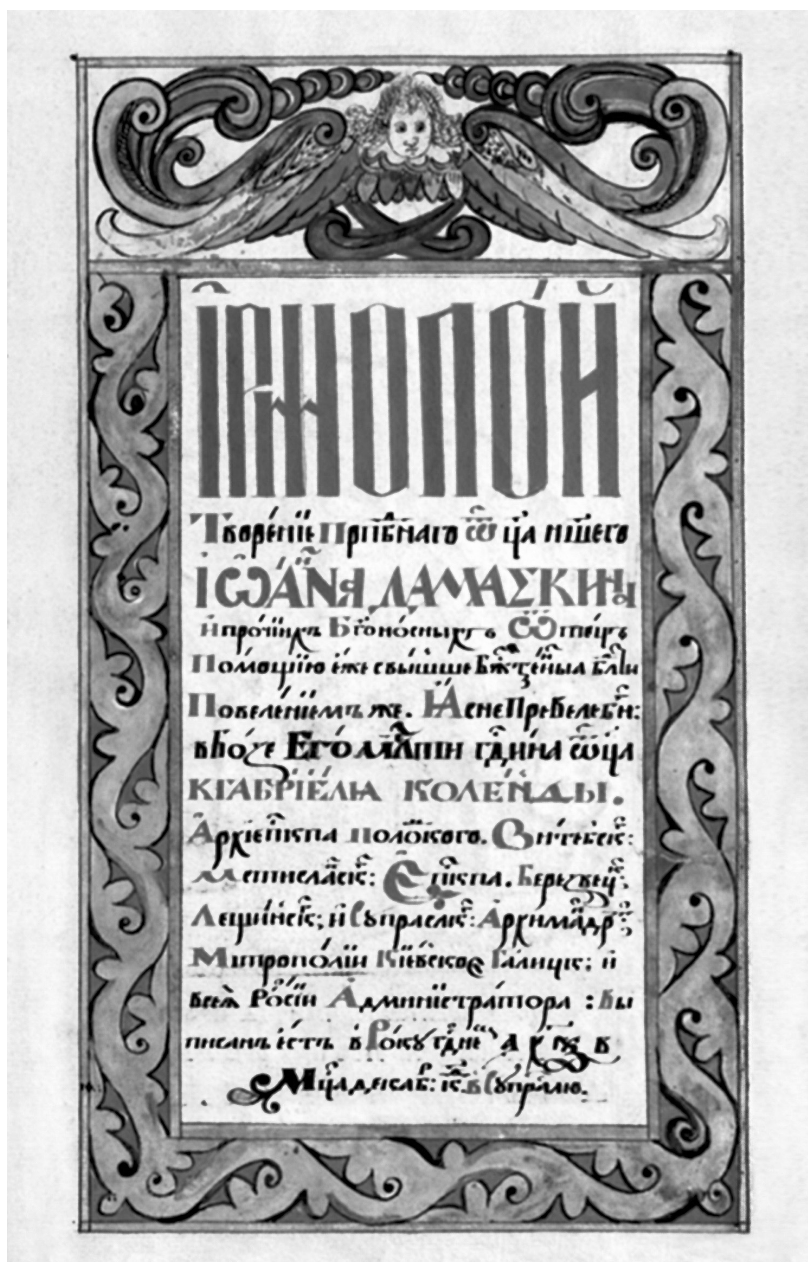 ІРМОЛОЙ
Творе́нїе Прпⷣбнаго Ѿца нш҃его
ІѠА́ННА ДАМАСКИНА
И҆ про́чихъ Бг҃оно́сныхъ Ѿтецъ
По́мощїю е́же свы́шше Бж҃те́нныѧ
Повеле́нїемъ же. Ꙗ҆сне Превелебн:
в Бо́зѣ Его́ МЛⷭТИ гдⷭ҇ина ѿца
К ГАБРІЕ́ЛꙖ КОЛЕ́НДЫ.
Архїепⷭкпа Поло́цкого. Ви́тебск:
Мстиславск: Епⷭкпа. Березвец:
Лещи́нск; и҆ Супраслк: Архима́др
Митропо́лїи Кїевско Галицк; и҆
всеѧ̀ Ро́сїи Администра́тора : вы
писанъ є҆́стъ в Ро́ку гдⷭ҇не
Мцⷭ҇а декаб: в Супраслю.